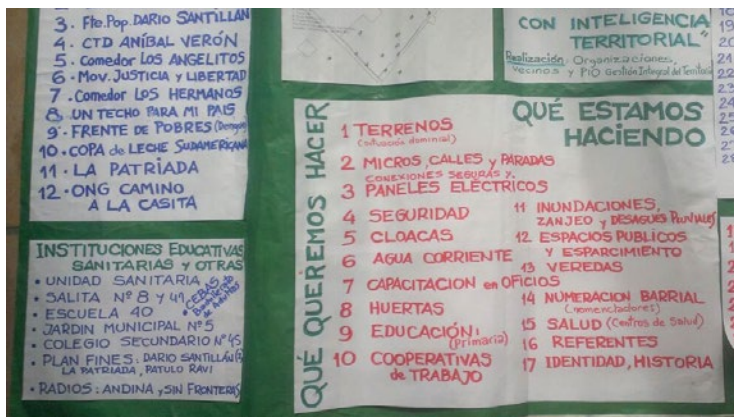 3. Fte. Pop. DARIO SANTILLAN
4. CTD ANÍBAL VERÓN
5. Comedor LOS ANGELITOS
6. Mov. JUSTICIA y LIBERTAD
7. Comedor LOS HERMANOS
8. UN TECHO PARA MI PAIS
9. FRENTE DE POBRES
10. COPA de LECHE SUDAMERICANA
11. LA PATRIADA
12. ONG CAMINO
A LA CASITA
INSTITUCIONES EDUCATIVAS
SANITARIAS y OTRAS
• UNIDAD SANITARIA
• SALITA Nº 8 y 41
• CEBAS
Bachillerato
de Adultos
• ESCUELA 40
• JARDIN MUNICIPAL Nº5
• COLEGIO SECUNDARIO Nº45
• PLAN FINES: DARIO SANTILLÁN
LA PATRIADA, PATULO RAVI
• RADIOS: ANDINA y SIN FRONTERAS
CON INTELIGENCIA
TERRITORIAL"
Realización: Organizaciones,
vecinos y PIO Gestión Integral del Territorio
QUÉ QUEREMOS HACER
QUÉ ESTAMOS
HACIENDO
1 TERRENOS
(situación dominial)
2 MICROS, CALLES y PARADAS
CONEXIONES SEGURAS y
3 PANELES ELÉCTRICOS
4 SEGURIDAD
5 CLOACAS
6 AGUA CORRIENTE
7 CAPACITACION en OFICIOS
8 HUERTAS
9 EDUCACIÓN:
(Primaria)
10 COOPERATIVAS
de TRABAJO
11 INUNDACIONES,
ZANJEO y DESAGÜES PLUVIALES
12 ESPACIOS PUBLICOS
y ESPARCIMIENTO
13 VEREDAS
14 NUMERACION BARRIAL
(nomencladores)
15 SALUD (Centros de Salud)
16 REFERENTES
17 IDENTIDAD, HISTORIA
19
20
21
22
23
24
25
26
27
28